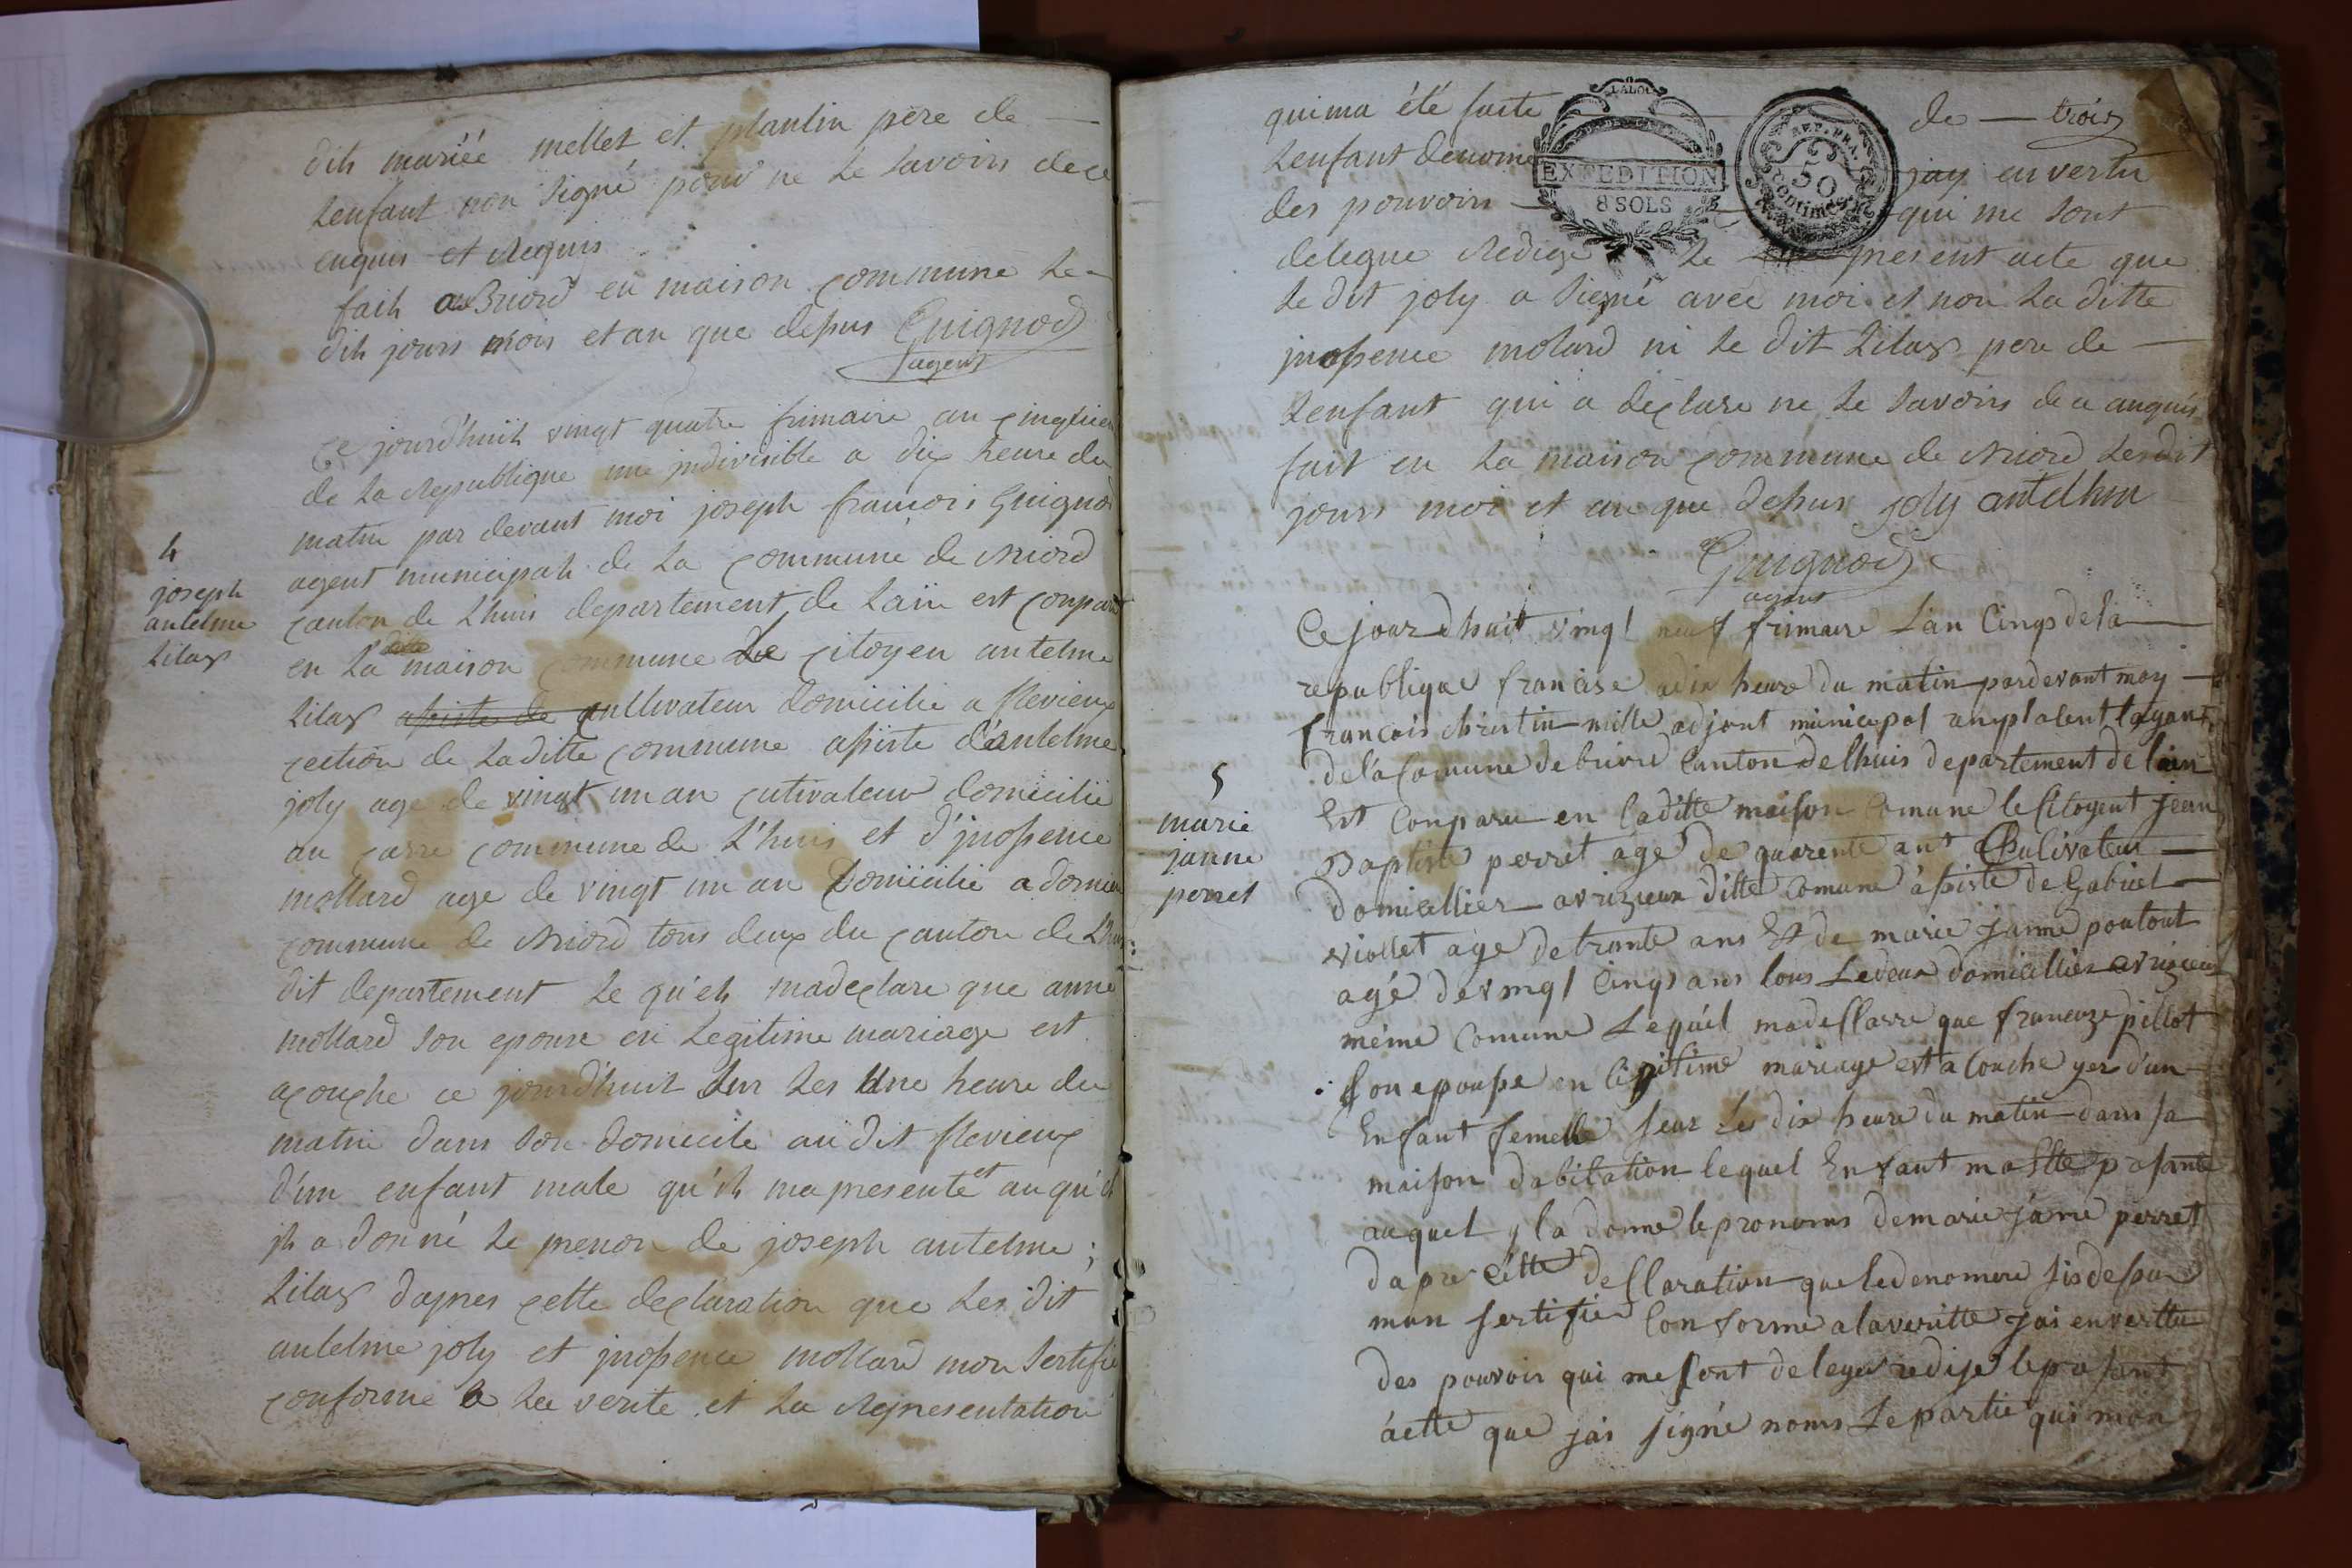 dih mariée mellet et plantin père de
Lenfant non Signé pour ne le savoirs dece
enquis et Requis
faih au Briord en maison commune le
dih jours mois et an que depus Guignod
agent
Ce jourd'huih vingt quatre frimaire an cinqiem
de La Republique une jndivisible a dix heure du
matin par devant moi joseph francois Guignod
agent municipah de La commune de Briord
canton de Lhuis departement de Lain est conparu
en La ditte maison commune Le citoyen antelme
Lilaz apiste de cultivateur domicilie a flevieux
cection de Laditte commune apiste d'antelme
joly age de vingt un an cutivateur domicilie
au commune de L'huis et d'jnosence
mollard age de vingt un an Domicilie a
commune de Briord tous deux du canton de Lhuis
dit departement Le qu'eh madeclare que anne
mollard son epouse en Legitime mariage est
acouche ce jourd'huit sur Les Une heure du
matin dans son domicile au dit flevieux
d'un enfant male qu'ih ma presente et auqu'eh
jh a donné Le prenon de joseph antelme
Lilaz d'apres cette declaration que Les dit
antelme joly et jnosence mollard mon Sertifie
conforme a La verite et La Representation
4
joseph
antelme
Lilaz
qui ma été faite de trois
Lenfant denome jay en vertu
des pouvoirs qui me sont
delegue Redige Le present acte que
Le dit joly a signé avec moi et non La ditte
jnosence molard ni Le dit Lilaz pere de
Lenfant qui a declare ne Le savoirs de a anquis
fait en La maison commune de Briord Lesdit
jours moi et an que depus joly antelhm
Guignod
agent
LALOI
EXPEDITION
8 SOLS
REP. FRA.
50
centimes
Ce jourdhuit vingt neuf frimaire Lan Cinqs dela
republique francise a dix heure du matin pardevant moy
francois christin mille adjont municipal remplalent lagant
dela Comune debriord Canton delhuis departement de lain
Est Conparu en laditte maison Comune le sitoyent jean
Baptiste perret agé de quarente ant Culivateur
domicellier a vrizieux ditte Comune apiste de Gabriel
viollet age detrante ans Et de marie janne poutout
agé de vingt Cinqs ans tous Ledeux domicellier a vrizieux
même Comune Lequel madeslarre que francoize pillot
son epouse en legitime mariage est a Couche yer d'un
Enfant femelle seur Les dix heure du matin dans sa
maison dabitation lequel Enfant
auquel yla donne le pronoms demarie janne perret
dapre cette desllaration que ledenomere
mon sertifie Conforme alaveritte jai envertu
des pouvoir qui me sont deleger redije lepresant
acte que jai signé noms Le partie qui mon
5
marie
janne
perret